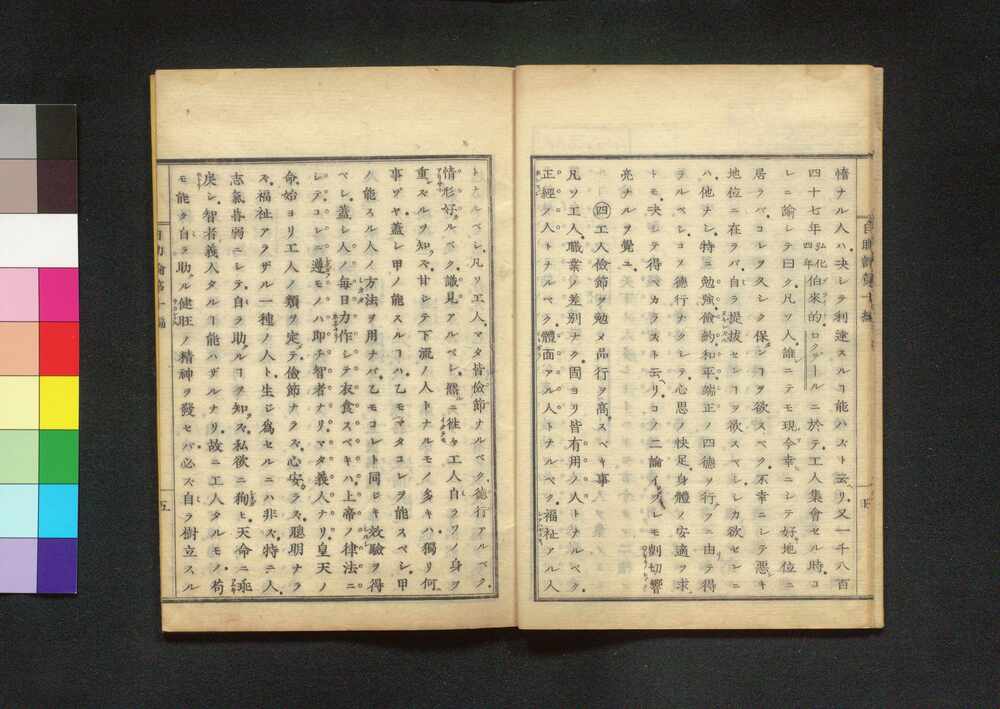 惰ナル人ハ決シテ利達スルコ能ハズト云リ又一千八百
四十七年弘化四年伯來的ロクツールニ於テ工人集會セル時コ
レニ諭シテ曰ク凡ソ人誰ニテモ現今幸ニシテ好地位ニ
居ラバコレヲ久シク保ンコヲ欲スベク不幸ニシテ悪キ
地位ニ在ラバ自ラ提拔センコヲ欲スベシレカ欲セレニ
ハ他ナシ特ニ勉強儉約和平端正ノ四德ヲ行フニ由テ得
ラルベシコノ德行ナクシテ心思ノ快足身體ノ安適ヲ求
トモ決シテ得ベカラスト云リコノ二論イヅレモ剴切響
亮ナルヲ覺ユ
四工人儉節ヲ勉メ品行ヲ高スベキ事
凡ソ工人職業ノ差別ナク固ヨリ皆有用ノ人トナルベク
正經ノ人トナルベク體面アル人トナルベク福祉アル人
トナルベシ凡リ工人マタ皆儉節ナルベク德行アルベク
情形好ルベク識見アルベシ然ニ往々工人自ラワノ身ヲ
重スルヲ知ズ甘シテ下流ノ人トナルモノ多キハ獨リ何
事ゾヤ蓋シ甲ノ能スルコハ乙モマタコレヲ能スベシ甲
ノ能スル人ノ方法ヲ用ナバ乙モコレト同ジキ效驗ヲ得
ベシ蓋シ人ノ毎日力作シテ衣食スベキハ上帝ノ律法ニ
シテコレニ遵モノハ即チ智者ナリマタ義人ナリ皇天ノ
命始ヨリ工人ノ類ヲ定テ儉節ナラズ心安ラズ聰明ナラ
ズ福祉アラザル一種ノ人ト生ジ爲セルニハ非ズ特ニ人
志氣昏弱ニシテ自ラ助ルコヲ知ズ私欲ニ徇ヒ天命ニ乖
戻シ智者義人タルコ能ハザルナリ故ニ工人タルモノ苟
モ能ク自ラ助ル健旺ノ精神ヲ發セバ必ズ自ラ樹立スル
五